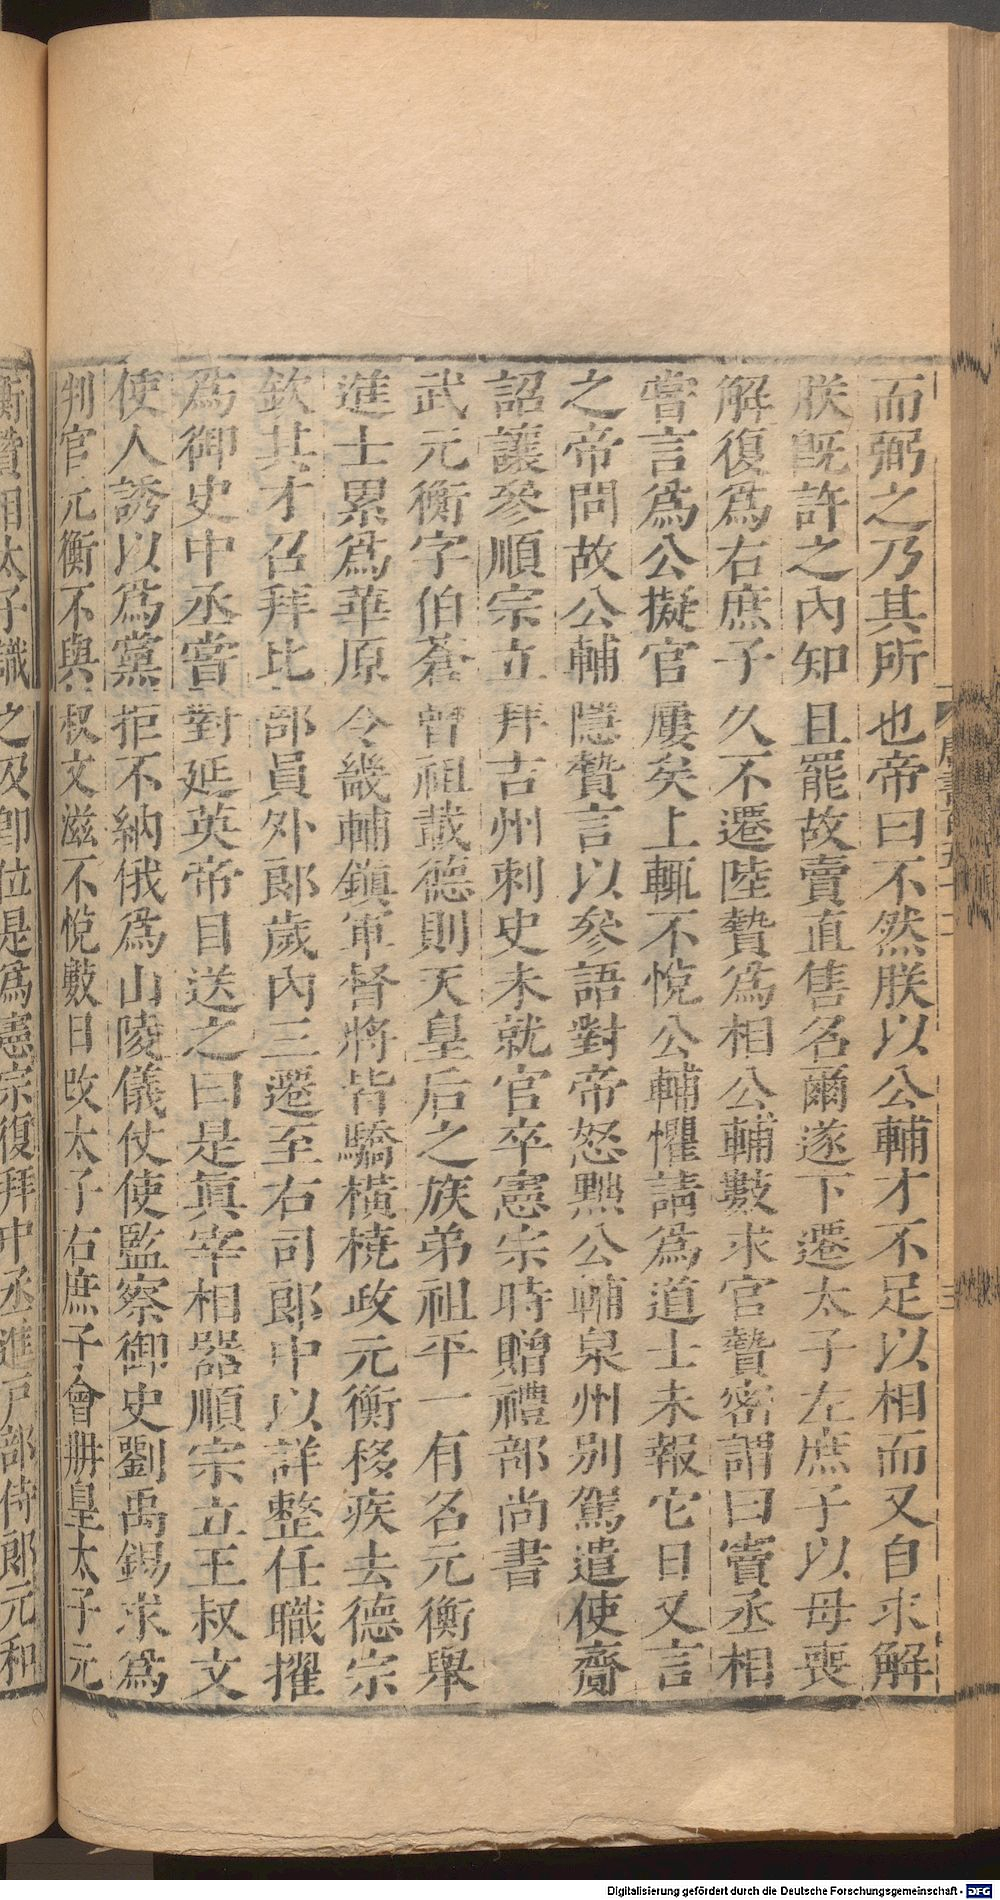 而弼之乃其所也帝曰不然朕以公輔才不足以相而又自求解
朕旣許之內知且罷故賣直售名爾遂下遷太子左庶子以母喪
解復爲右庶子久不遷陸贄爲相公輔數求官贄密謂曰竇丞相
嘗言爲公擬官屢矣上輒不悅公輔懼請爲道士未報它日又言
之帝問故公輔隱贄言以參語對帝怒黜公輔泉州别駕遣使齎
詔讓參順宗立拜吉州刺史未就官卒憲宗時贈禮部尚書
武元衡字伯蒼曾祖載德則天皇后之族弟祖平一有名元衡舉
進士累爲華原令畿輔鎮軍督將皆驕橫橈政元衡移疾去德宗
欽其才召拜比部員外郎歲內三遷至右司郎中以詳整任職擢
爲御史中丞嘗對延英帝目送之曰是眞宰相器順宗立王叔文
使人誘以爲黨拒不納俄爲山陵儀仗使監察御史劉禹錫求爲
判官元衡不與叔文滋不悅數日改太子右庶子會册皇太子元
衡贊相太子識之及卽位是爲憲宗復拜中丞進戸部侍郎元和
Digitalisierung gefördert durch die Deutsche Forschungsgemeinschaft - DFG